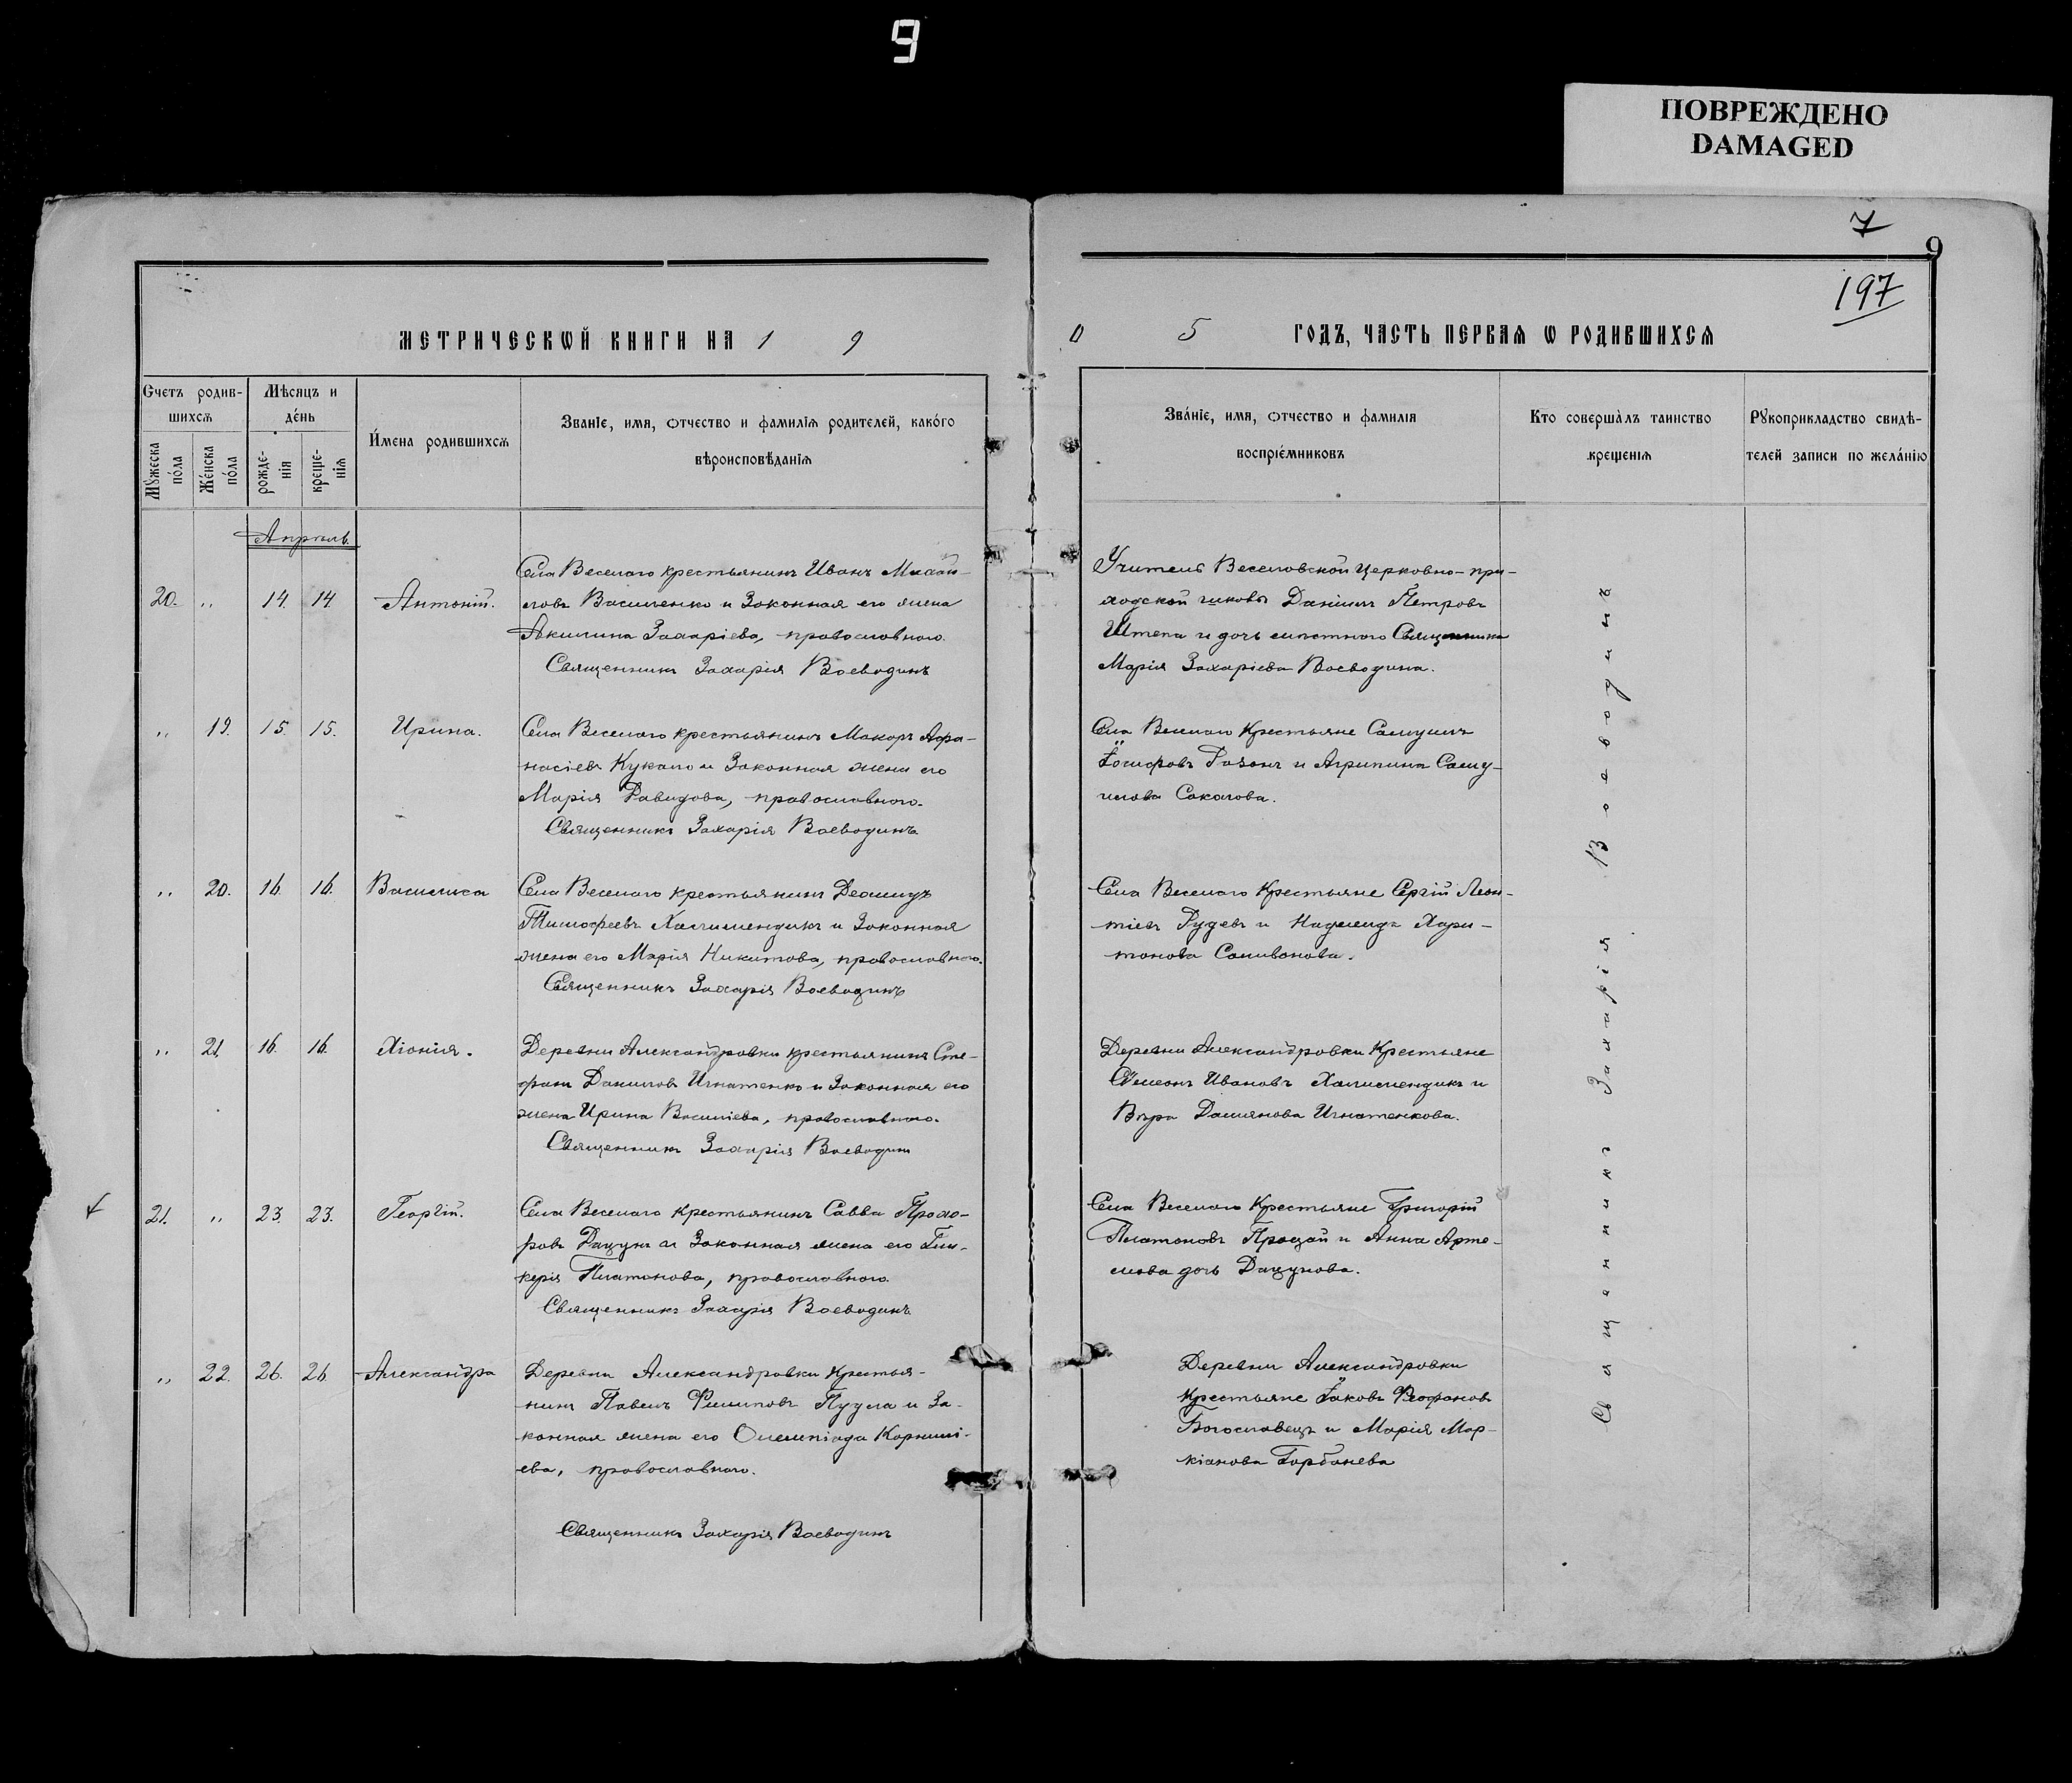 9
ПОВРЕЖДЕНО
DAMAGED
7
9
197
МЕТРИЧЕСКѠЙ КНИГИ НА 1 9 0 5 ГОДЪ, ЧАСТЬ ПЕРВАѦ Ѡ РОДИВШИХСѦ
Счетъ родив-
шихсѧ
Мꙋжеска по́ла
Же́нска по́ла
Мѣсяцъ и
де́нь
рожде-
нія
креще-
нія
И́мена родившихсѧ
Званіе, имя, ѻтчество и фамиліѧ родителей, како́го
вѣроисповѣ́даніѧ
Зва́ніе, имя, ѻтчество и фамилія
воспріе́мниковъ
Кто соверша̀лъ таинство
крещенія
Рꙋкоприкладство свидѣ-
телей записи по жела́нію
Апрѣль.
20. „ 14. 14. Антоній.
Села Веселаго крестьянинъ Иванъ Михаи-
ловъ Василенко и Законная его жена
Акилина Захаріева, православнаго.
Священникъ Захарія Воеводинъ
Учитель Веселовской Церковно-при-
ходской школы Даніилъ Петровъ
Штепа и дочь мѣстнаго Священника
Марія Захаріева Воеводина.
„ 19. 15. 15. Ирина.
Села Веселаго крестьянинъ Макаръ Афа-
насіевъ Кукало и Законная жена его
Марія Давидова, православнаго.
Священникъ Захарія Воеводинъ
Села Веселаго Крестьяне Самуилъ
Іосифовъ Газанъ и Агрипина Саму-
илова Соколова.
„ 20. 16. 16. Василиса
Села Веселаго крестьянинъ Леонидъ
Тимофеевъ Халимендикъ и Законная
жена его Марія Никитова, православнаго.
Священникъ Захарія Воеводинъ
Села Веселаго Крестьяне Сергій Леон-
тіевъ Рудевъ и Надежда Хари-
тонова Селиванова.
„ 21. 16. 16. Хіонія.
Деревни Александровки крестьянинъ Сте-
фанъ Даниловъ Игнатенко и Законная его
жена Ирина Василіева, православнаго.
Священникъ Захарія Воеводинъ
Деревни Александровки Крестьяне
Симеонъ Ивановъ Халимендикъ и
Вѣра Даміянова Игнатенкова.
21. „ 23. 23. Георгій.
Села Веселаго крестьянинъ Савва Прохо-
ровъ Дацунъ и Законная жена его Гли-
керія Платонова, православнаго
Священникъ Захарія Воеводинъ
Села Веселаго Крестьяне Григорій
Платоновъ Процай и Анна Арте-
мова дочь Дацунова.
„ 22. 26. 26 Александра
Деревни Александровки Крестья-
нинъ Павелъ Филиповъ Пудла и За-
конная жена его Олемпіада Корнилі-
ева, православнаго.
Священникъ Захарія Воеводинъ
Деревни Александровки
Крестьяне Іаковъ Феофановъ
Богославецъ и Марія Мар-
кіанова Горбанева
Священникъ Захарія Воеводинъ